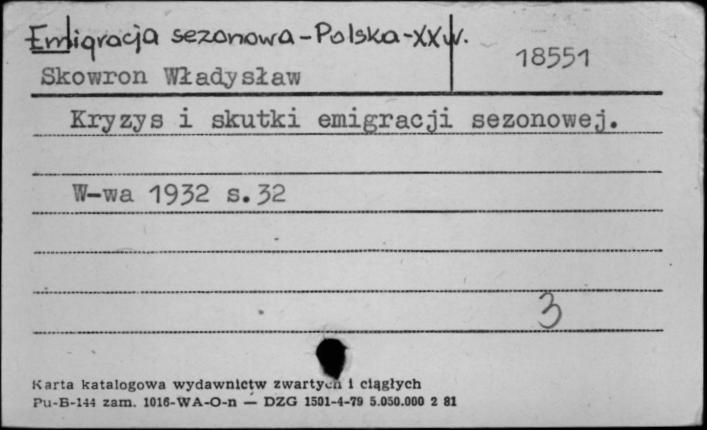 Emigracja sezonowa-Polska-XXw.
18551
Skowron Władysław
Kryzys i skutki emigracji sezonowej.
W-wa 1932 s.32
3
Karta katalogowa wydawnictw zwartych i ciągłych
Pu-B-144 zam. 1016-WA-O-n — DZG 1501-4-79 5.050.000 2 81